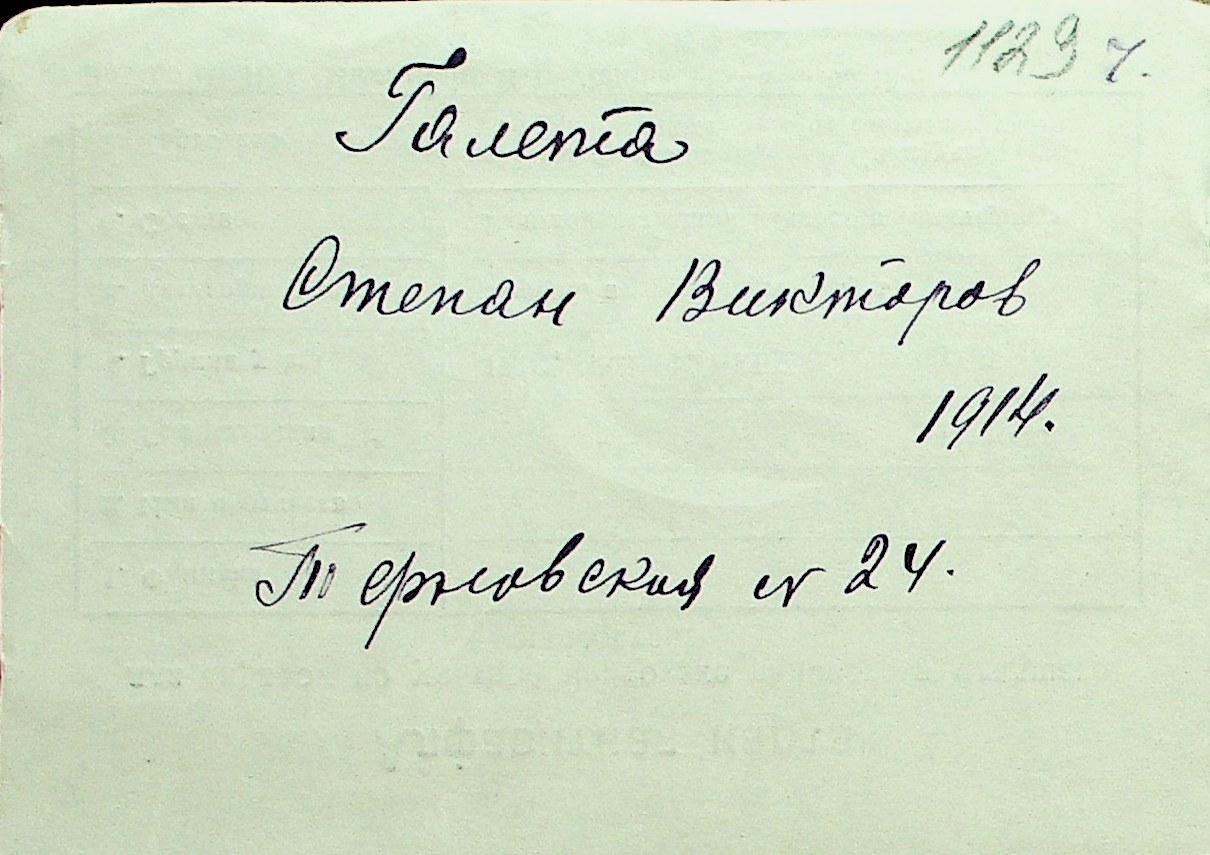 1129 ч.
Галета
Степан Викторов
1914.
Терновская № 24.